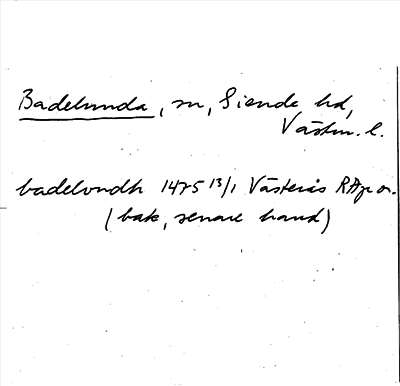 Badelunda, sn, Siende hd,
Västm. l.
badelondh 1475 13/1 Västerås RAp or.
(bak, senare hand)